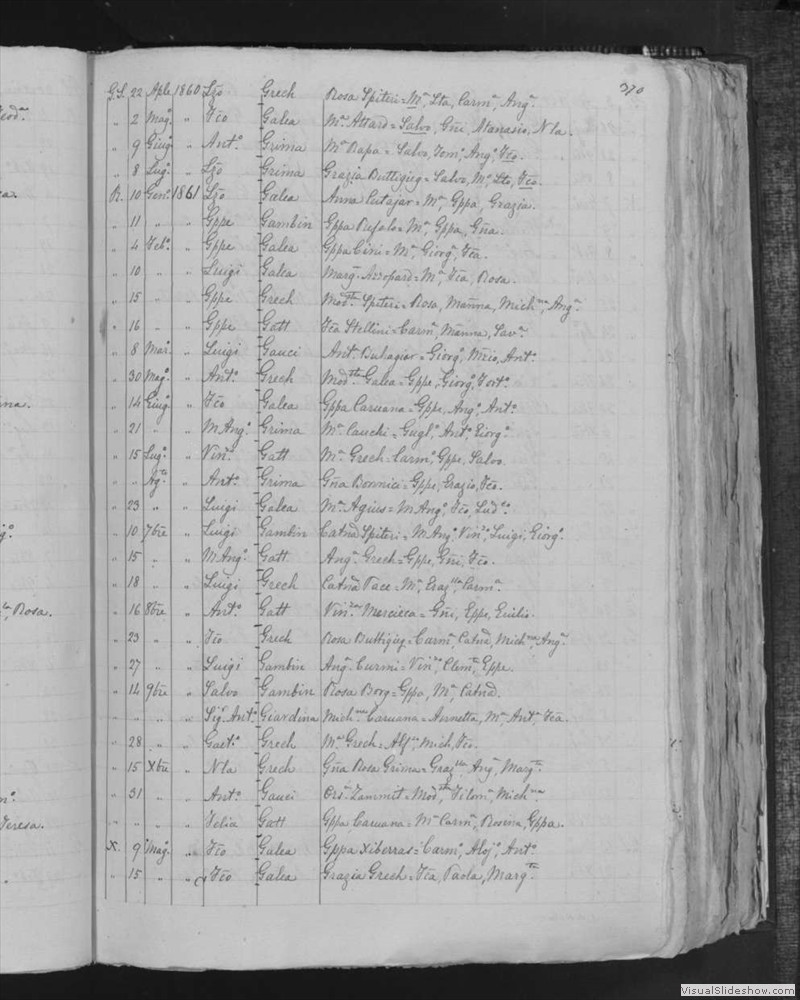 370
G.S. 22 Aple 1860 Lzo Grech Rosa Spiteri = Ma, Sta, Carma, Anga.
" 2 Mago " Fco Galea Ma Attard = Salvo, Gni, Atanasio, Nla.
" 9 Giugo " Anto Grima Ma Bapa = Salvo, Tomo, Ango, Fco.
" 8 Lugo " Lzo Grima Grazia Buttigieg = Salvo, Ma, Sto, Fco.
R. 10 Geno 1861 Lzo Galea Anna Cutajar = Ma, Gppa, Grazia.
" 11 " " Gppe Gambin Gppa Refalo = Ma, Gppa, Gna.
" 4 Febo " Gppe Galea Gppa Cini = Ma, Giorga, Fca.
" 10 " " Luigi Galea Marga Azzopard = Ma, Fca, Rosa.
" 15 " " Gppe Grech Modta Spiteri = Rosa, Manna, Michna, Anga.
" 16 " " Gppe Gatt Fca Stellini = Carma, Manna, Sava.
" 8 Maro " Luigi Gauci Anta Buhagiar = Giorgo, Nzio, Anto.
" 30 Mago " Anto Grech Modta Galea = Gppe, Giorgo, Forto.
" 14 Giugo " Fco Galea Gppa Caruana = Gppe, Ango, Anto.
" 21 " " M Ango Grima Ma Cauchi = Gugl, Anto, Giorgo.
" 15 Lugo " Vino Gatt Ma Grech = Carmo, Gppe, Salvo.
" " Agto " Anto Grima Gna Bonnici = Gppe, Grazio, Fco.
" 23 " " Luigi Galea Ma Agius = M Ango, Fco, Ludo.
" 10 7bre " Luigi Gambin Catna Spiteri = M Ango, Vinzo, Luigi, Giorgo.
" 15 " " M Ango Gatt Anga Grech = Gppe, Gni, Fco.
" 18 " " Luigi Grech Catna Pace = Ma, Grazlla, Carma.
" 16 8bre " Anto Gatt Vinza Mercieca = Gni, Gppe, Emilio.
" 23 " " Fco Grech Rosa Buttigieg = Carma, Catna, Michna, Anga.
" 27 " " Luigi Gambin Anga Curmi = Vino, Clemo, Gppe.
" 14 9bre " Salvo Gambin Rosa Borg = Gppa, Ma, Catna.
" " " " Sigr Anto Giardina Michna Caruana = Annetta, Ma, Anta, Fca.
" 28 " " Gaeto Grech Ma Grech = Alf, Mich, Fco.
" 15 Xbre " Nla Grech Gna Rosa Grima = Grazlla, Anga, Margta.
" 31 " " Anto Gauci Orsa Zammit = Modta, Filoma, Michna.
" " " " Felia Gatt Gppa Caruana = Ma Carma, Rosina, Gppa.
X. 9 Mago " Fco Galea Gppa Xiberras = Carmo, Aloj, Anto.
" 15 " " Fco Galea Grazia Grech = Fca, Paola, Margta.
Rosa.
Teresa.
VisualSlideshow.com